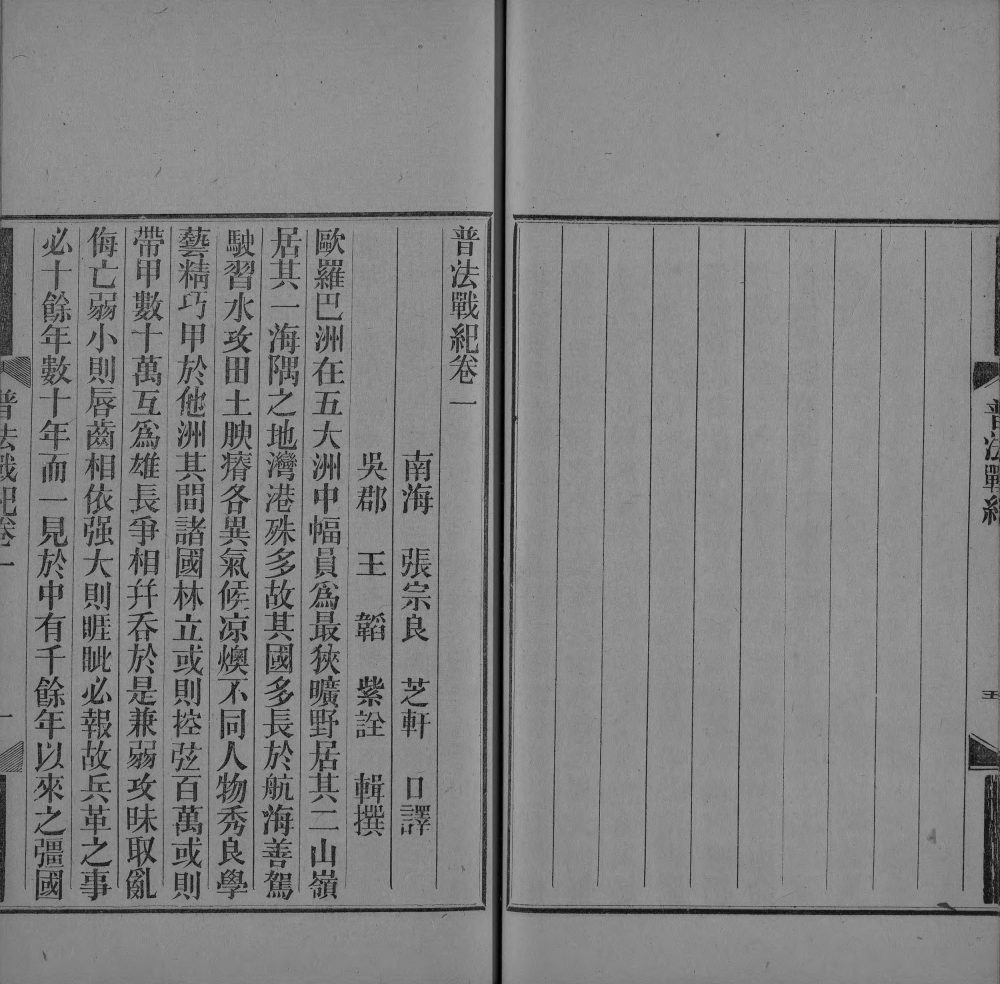 普法戰紀
五
普法戰紀卷一
南海 張宗良 芝軒 口譯
吳郡 王 韜 紫詮 輯撰
歐羅巴洲在五大洲中幅員爲最狹曠野居其二山嶺
居其一海隅之地灣港殊多故其國多長於航海善駕
駛習水攻田土腴瘠各異氣候凉燠不同人物秀良學
藝精巧甲於他洲其間諸國林立或則控弦百萬或則
帶甲數十萬互爲雄長爭相幷吞於是兼弱攻昧取亂
侮亡弱小則唇齒相依强大則睚眦必報故兵革之事
必十餘年數十年而一見於中有千餘年以來之彊國
普法戰紀卷一
一